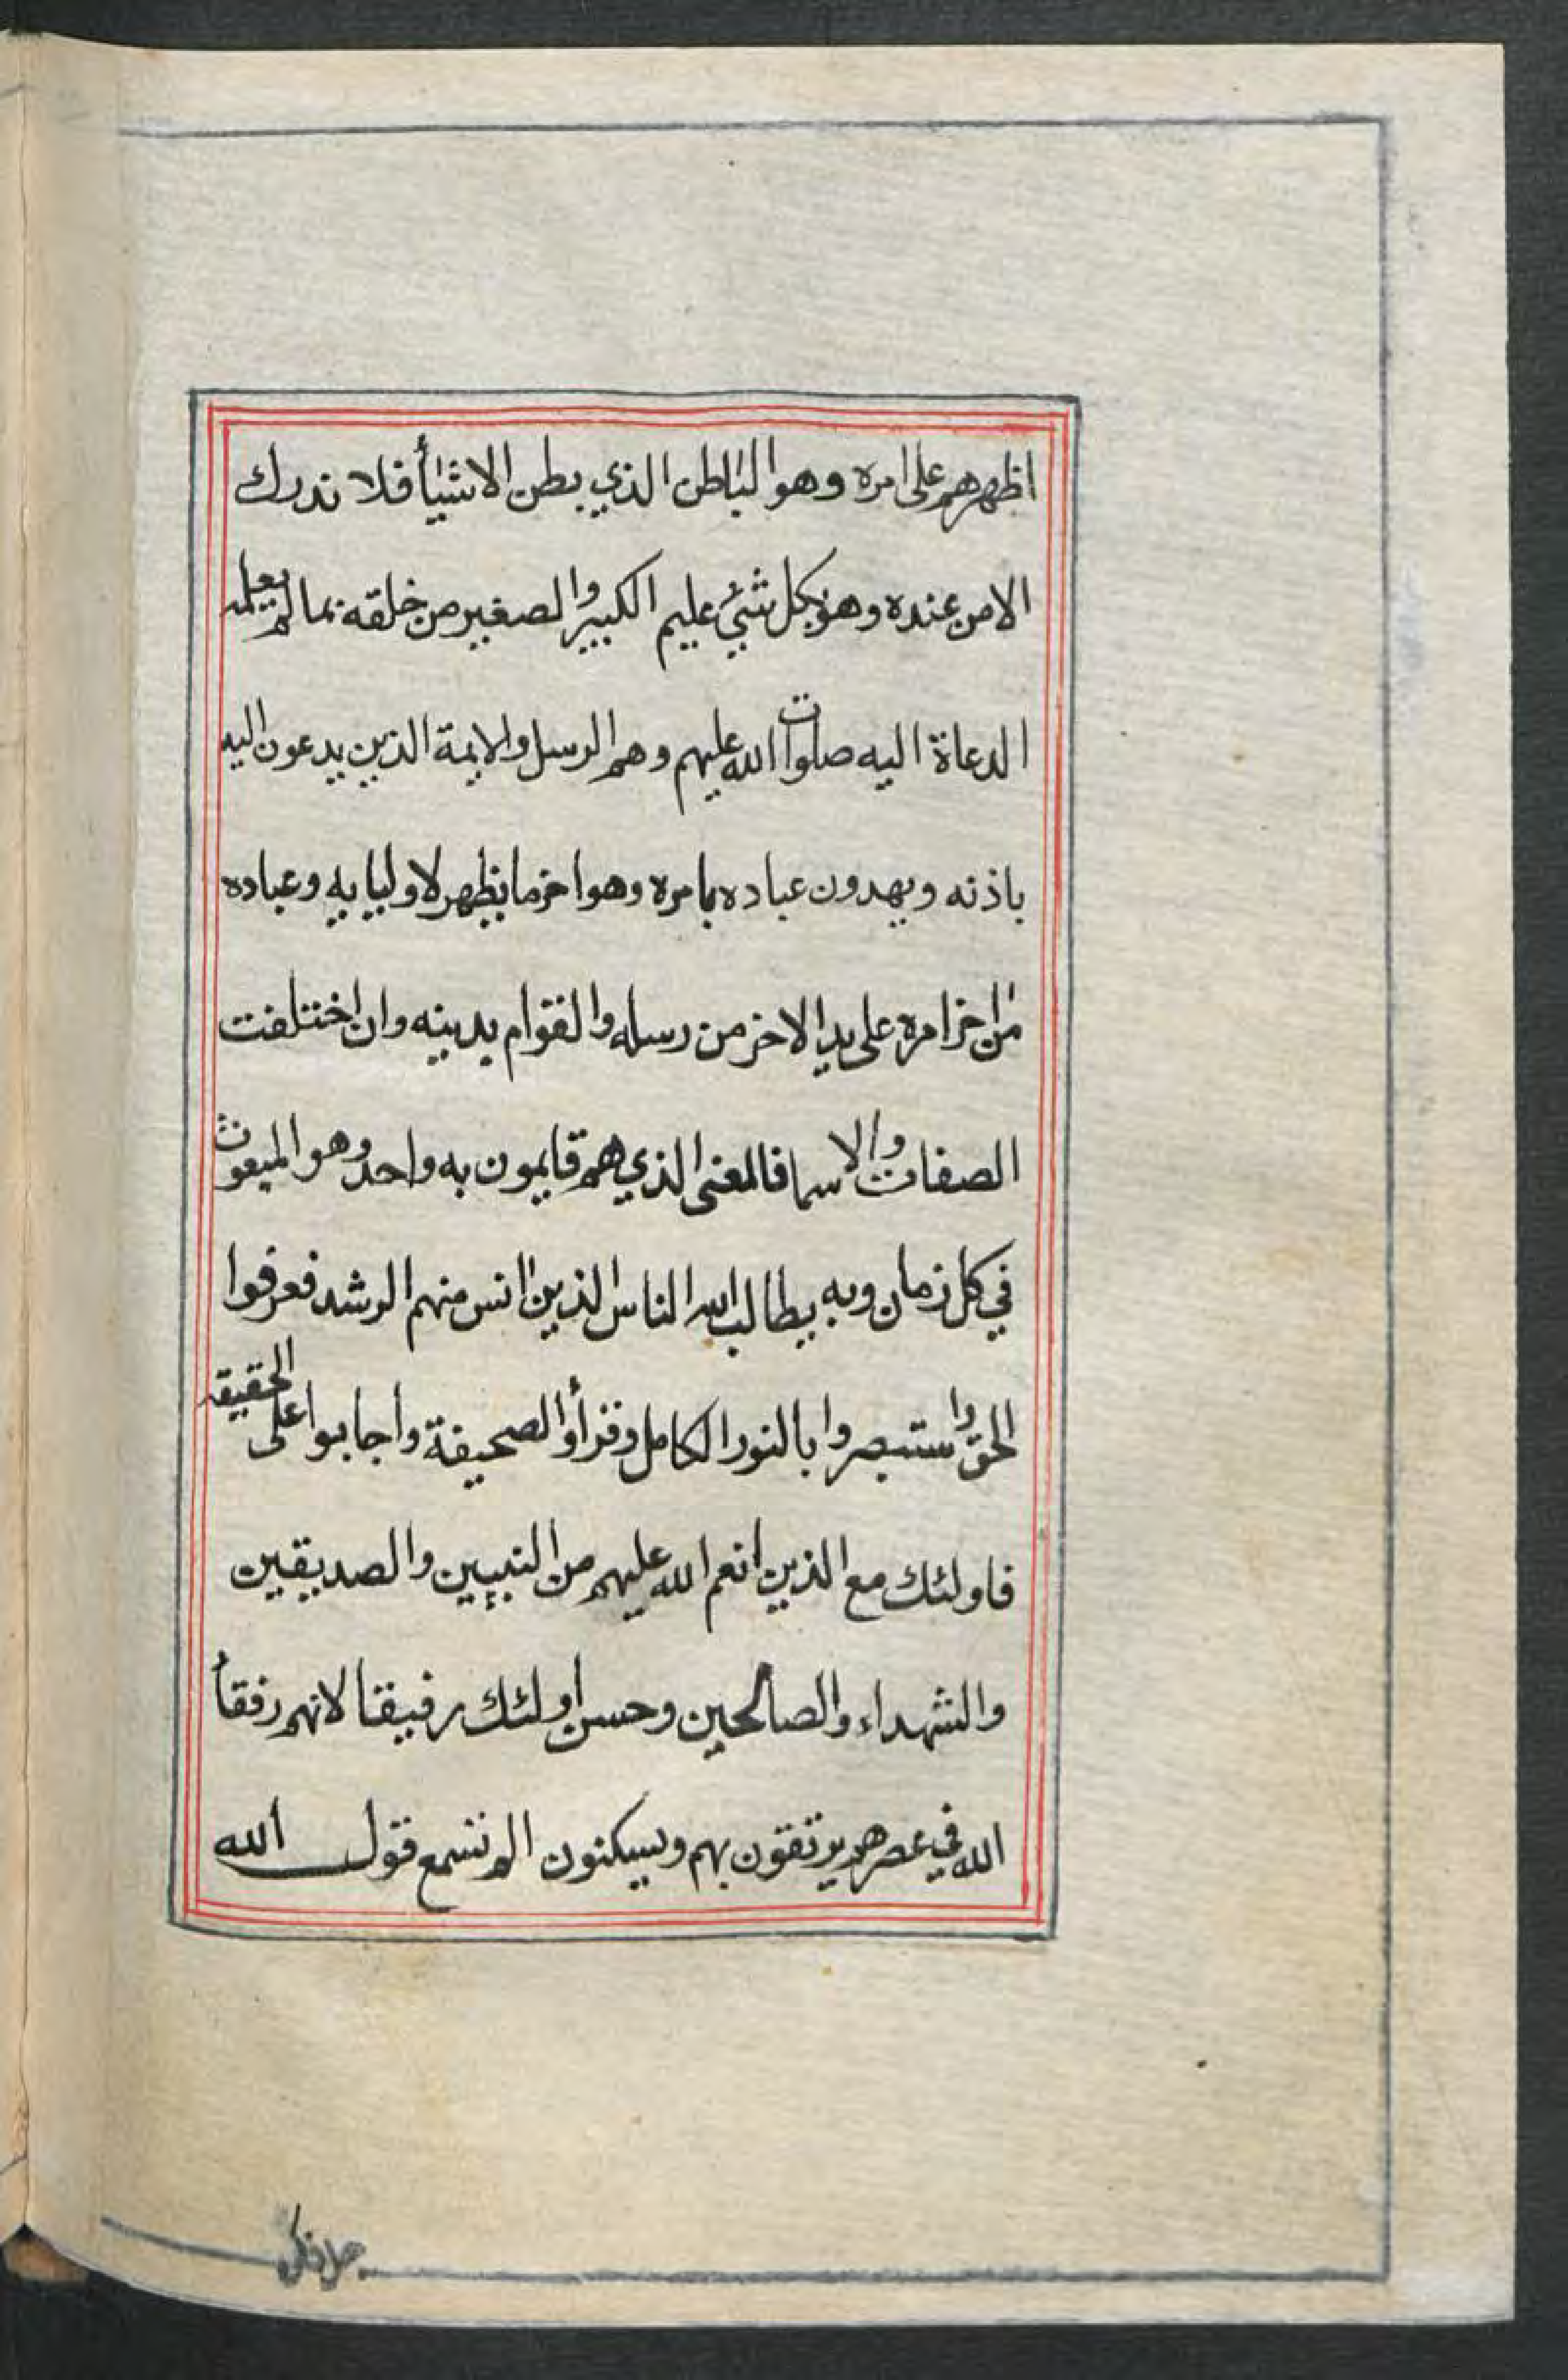 اظهرهم على امره وهو الباطن الذي بطن الاشيأ فلا تدرك
الا من عنده وهو بكل شيئ عليم الكبير والصغير من خلقه بما لم يعلمه
الدعاة اليه صلوات الله عليهم وهم الرسل والايمة الذين يدعون اليه
باذنه ويهدون عباده بامره وهو اخر ما يظهر لاوليايه وعباده
من اخر امره على يد الاخر من رسله والقوام بدينه وان اختلفت
الصفات والاسما فالمعنى الذي هم قايمون به واحد وهو المبعوث
في كل زمان وبه يطالب الله الناس الذين انس منهم الرشد فعرفوا
الحق واستبصروا بالنور الكامل وقرأوا الصحيفة وأجابوا على الحقيقه
فاولئك مع الذين انعم الله عليهم من النبيين والصديقين
والشهداء والصالحين وحسن اولئك رفيقا لانهم رفقأ
الله في عصرهم يرتفقون بهم ويسكنون الم تسمع قول الله
جل ذكره